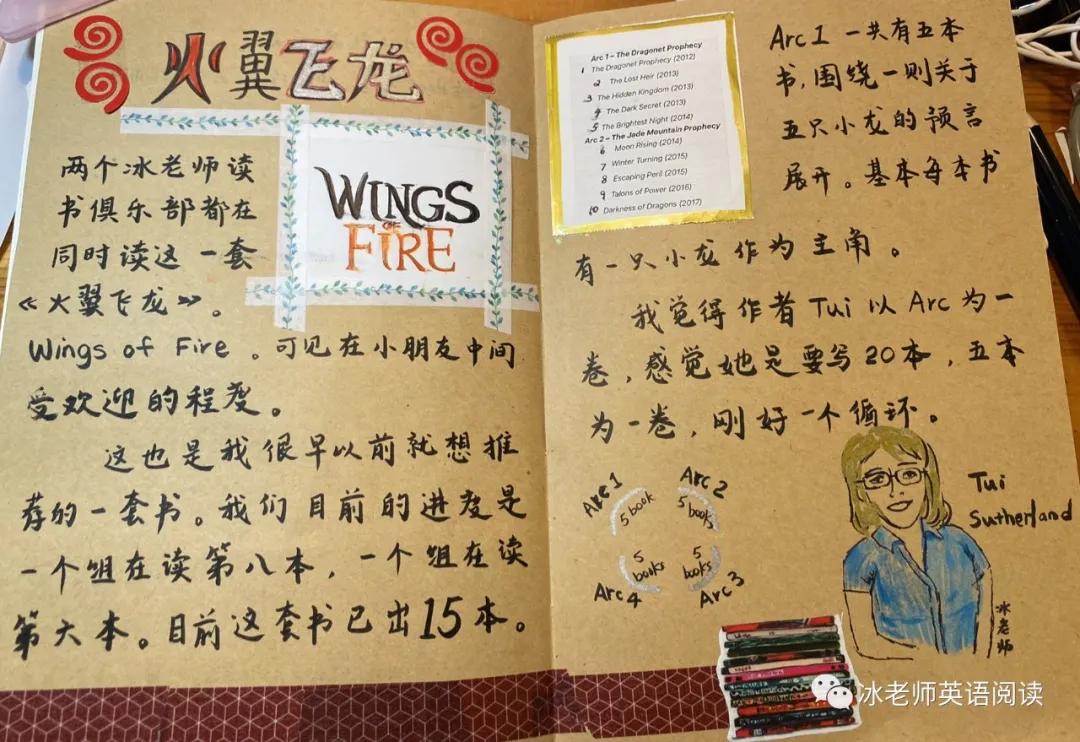 火翼飞龙
两个冰老师读
书俱乐部都在
同时读这一套
《火翼飞龙》。
Wings of Fire。可见在小朋友中间
受欢迎的程度。
这也是我很早以前就想推
荐的一套书。我们目前的进度是
一个组在读第八本，一个组在读
第六本。目前这套书已出15本。
WINGS
OF
FIRE
Arc 1 – The Dragonet Prophecy
1 The Dragonet Prophecy (2012)
2 The Lost Heir (2013)
3 The Hidden Kingdom (2013)
4 The Dark Secret (2013)
5 The Brightest Night (2014)
Arc 2 – The Jade Mountain Prophecy
6 Moon Rising (2014)
7 Winter Turning (2015)
8 Escaping Peril (2015)
9 Talons of Power (2016)
10 Darkness of Dragons (2017)
Arc 1 一共有五本
书，围绕一则关于
五只小龙的预言
展开。基本每本书
有一只小龙作为主角。
我觉得作者 Tui 以 Arc 为一
卷，感觉她是要写20本，五本
为一卷，刚好一个循环。
Arc 1
5 book
Arc 2
5 books
5 books
Arc 4
5 books
Arc 3
Tui
Sutherland
冰老师
冰老师英语阅读